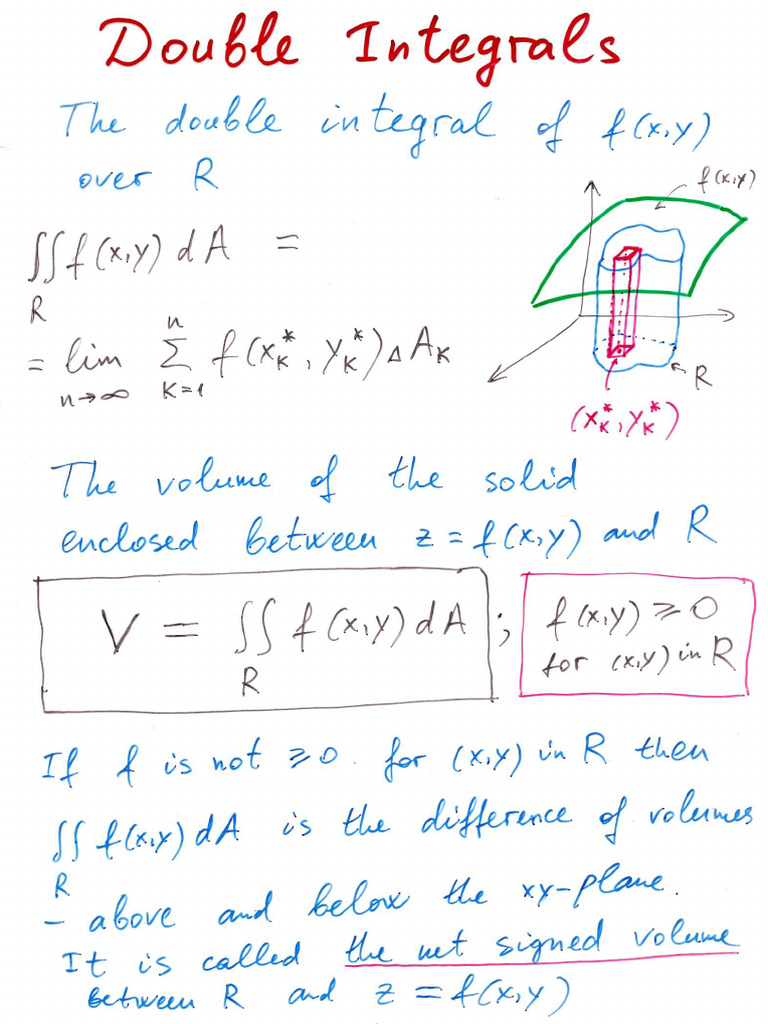 Double Integrals
The double integral of f(x,y)
over R
f(x,y)
∬f(x,y) dA =
R
= lim Σ f(x_K^*, y_K^*) ΔA_K
n→∞ K=1 n
R
(x_K^*, y_K^*)
The volume of the solid
enclosed between z = f(x,y) and R
V = ∬ f(x,y) dA ;
R
f(x,y) ≥ 0
for (x,y) in R
If f is not ≥ 0 for (x,y) in R then
∬ f(x,y) dA is the difference of volumes
R
– above and below the xy-plane.
It is called the net signed volume
between R and z = f(x,y)